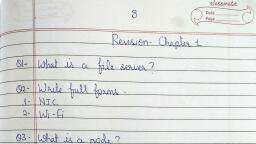 classmate
Date
Page
8
Revision- Chapter 1
Q1- What is a file server?
Q2- Write full forms.
1- NIC
2- Wi-Fi
Q3- What is a node?